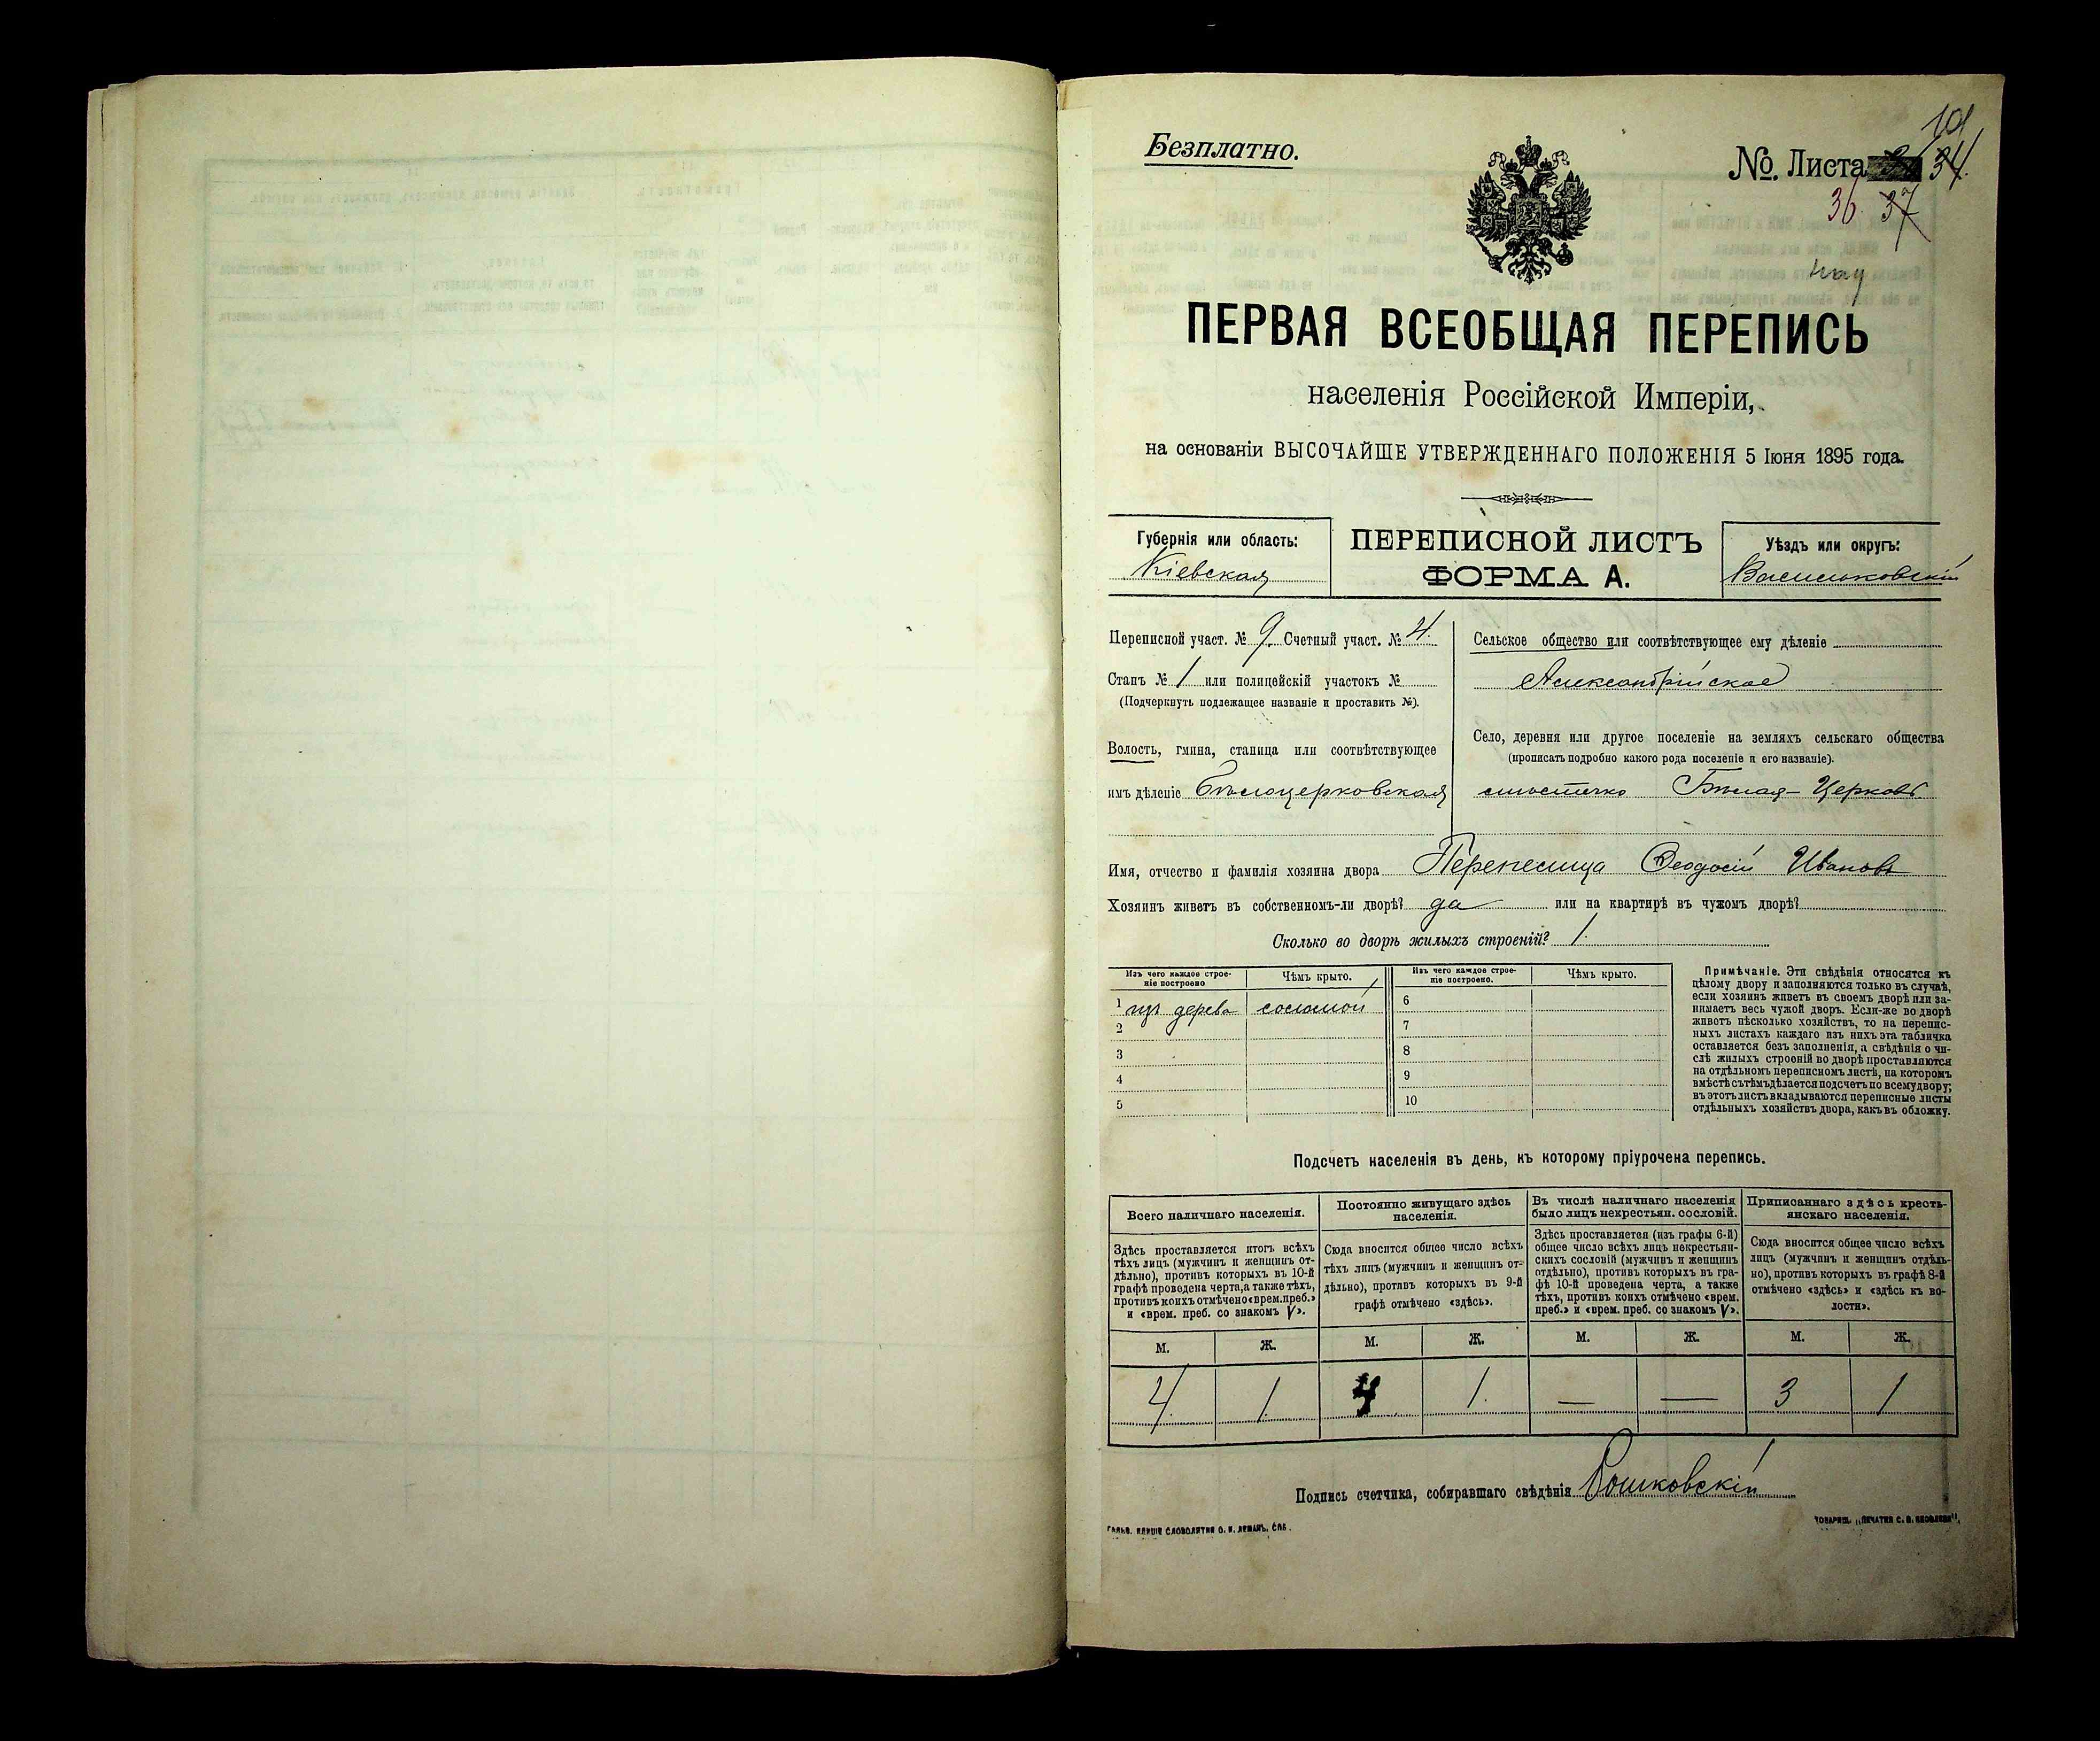 Безплатно.
№. Листа 34.
101
36 37
ПЕРВАЯ ВСЕОБЩАЯ ПЕРЕПИСЬ
населенія Россійской Имперіи,
на основаніи ВЫСОЧАЙШЕ УТВЕРЖДЕННАГО ПОЛОЖЕНІЯ 5 Іюня 1895 года.
Губернія или область:
Кіевская
ПЕРЕПИСНОЙ ЛИСТЪ
ФОРМА А.
Уѣздъ или округъ:
Васильковскій
Переписной участ. № 9. Счетный участ. № 4.
Станъ № 1 или полицейскій участокъ №
(Подчеркнуть подлежащее названіе и проставить №).
Волость, гмина, станица или соотвѣтствующее
имъ дѣленіе Бѣлоцерковская
Сельское общество или соотвѣтствующее ему дѣленіе
Александрійское
Село, деревня или другое поселеніе на земляхъ сельскаго общества
(прописать подробно какого рода поселеніе и его названіе).
мѣстечко Бѣлая-Церковь
Имя, отчество и фамилія хозяина двора Перепелица Феодосій Ивановъ
Хозяинъ живетъ въ собственномъ-ли дворѣ? да или на квартирѣ въ чужомъ дворѣ?
Сколько во дворѣ жилыхъ строеній? 1.
Изъ чего каждое строе-
ніе построено
Чѣмъ крыто.
1 изъ дерева соломой
2
3
4
5
Изъ чего каждое строе-
ніе построено.
Чѣмъ крыто.
6
7
8
9
10
Примѣчаніе. Эти свѣдѣнія относятся къ
цѣлому двору и заполняются только въ случаѣ,
если хозяинъ живетъ въ своемъ дворѣ или за-
нимаетъ весь чужой дворъ. Если-же во дворѣ
живетъ нѣсколько хозяйствъ, то на перепис-
ныхъ листахъ каждаго изъ нихъ эта табличка
оставляется безъ заполненія, а свѣдѣнія о чи-
слѣ жилыхъ строеній во дворѣ проставляются
на отдѣльномъ переписномъ листѣ, на которомъ
вмѣстѣ съ тѣмъ дѣлается подсчетъ по всему двору;
въ этотъ листъ вкладываются переписные листы
отдѣльныхъ хозяйствъ двора, какъ въ обложку.
Подсчетъ населенія въ день, къ которому пріурочена перепись.
Всего наличнаго населенія.
Здѣсь проставляется итогъ всѣхъ
тѣхъ лицъ (мужчинъ и женщинъ от-
дѣльно), противъ которыхъ въ 10-й
графѣ проведена черта, а также тѣхъ,
противъ коихъ отмѣчено «врем. преб.»
и «врем. преб. со знакомъ V».
М. Ж.
4. 1.
Постоянно живущаго здѣсь
населенія.
Сюда вносится общее число всѣхъ
тѣхъ лицъ (мужчинъ и женщинъ от-
дѣльно), противъ которыхъ въ 9-й
графѣ отмѣчено «здѣсь».
М. Ж.
4. 1.
Въ числѣ наличнаго населенія
было лицъ некрестьян. сословій.
Здѣсь проставляется (изъ графы 6-й)
общее число всѣхъ лицъ некрестьян-
скихъ сословій (мужчинъ и женщинъ
отдѣльно), противъ которыхъ въ гра-
фѣ 10-й проведена черта, а также
тѣхъ, противъ коихъ отмѣчено «врем.
преб.» и «врем. преб. со знакомъ V».
М. Ж.
— —
Приписаннаго здѣсь кресть-
янскаго населенія.
Сюда вносится общее число всѣхъ
лицъ (мужчинъ и женщинъ отдѣль-
но), противъ которыхъ въ графѣ 8-й
отмѣчено «здѣсь» и «здѣсь къ во-
лости».
М. Ж.
3 1
Подпись счетчика, собиравшаго свѣдѣнія
ГАЛЬВ. КЛИШЕ СЛОВОЛИТНИ О. И. ЛЕМАНЪ, СПБ.
ТОВАРИЩ. „ПЕЧАТНЯ С. П. ЯКОВЛЕВА".